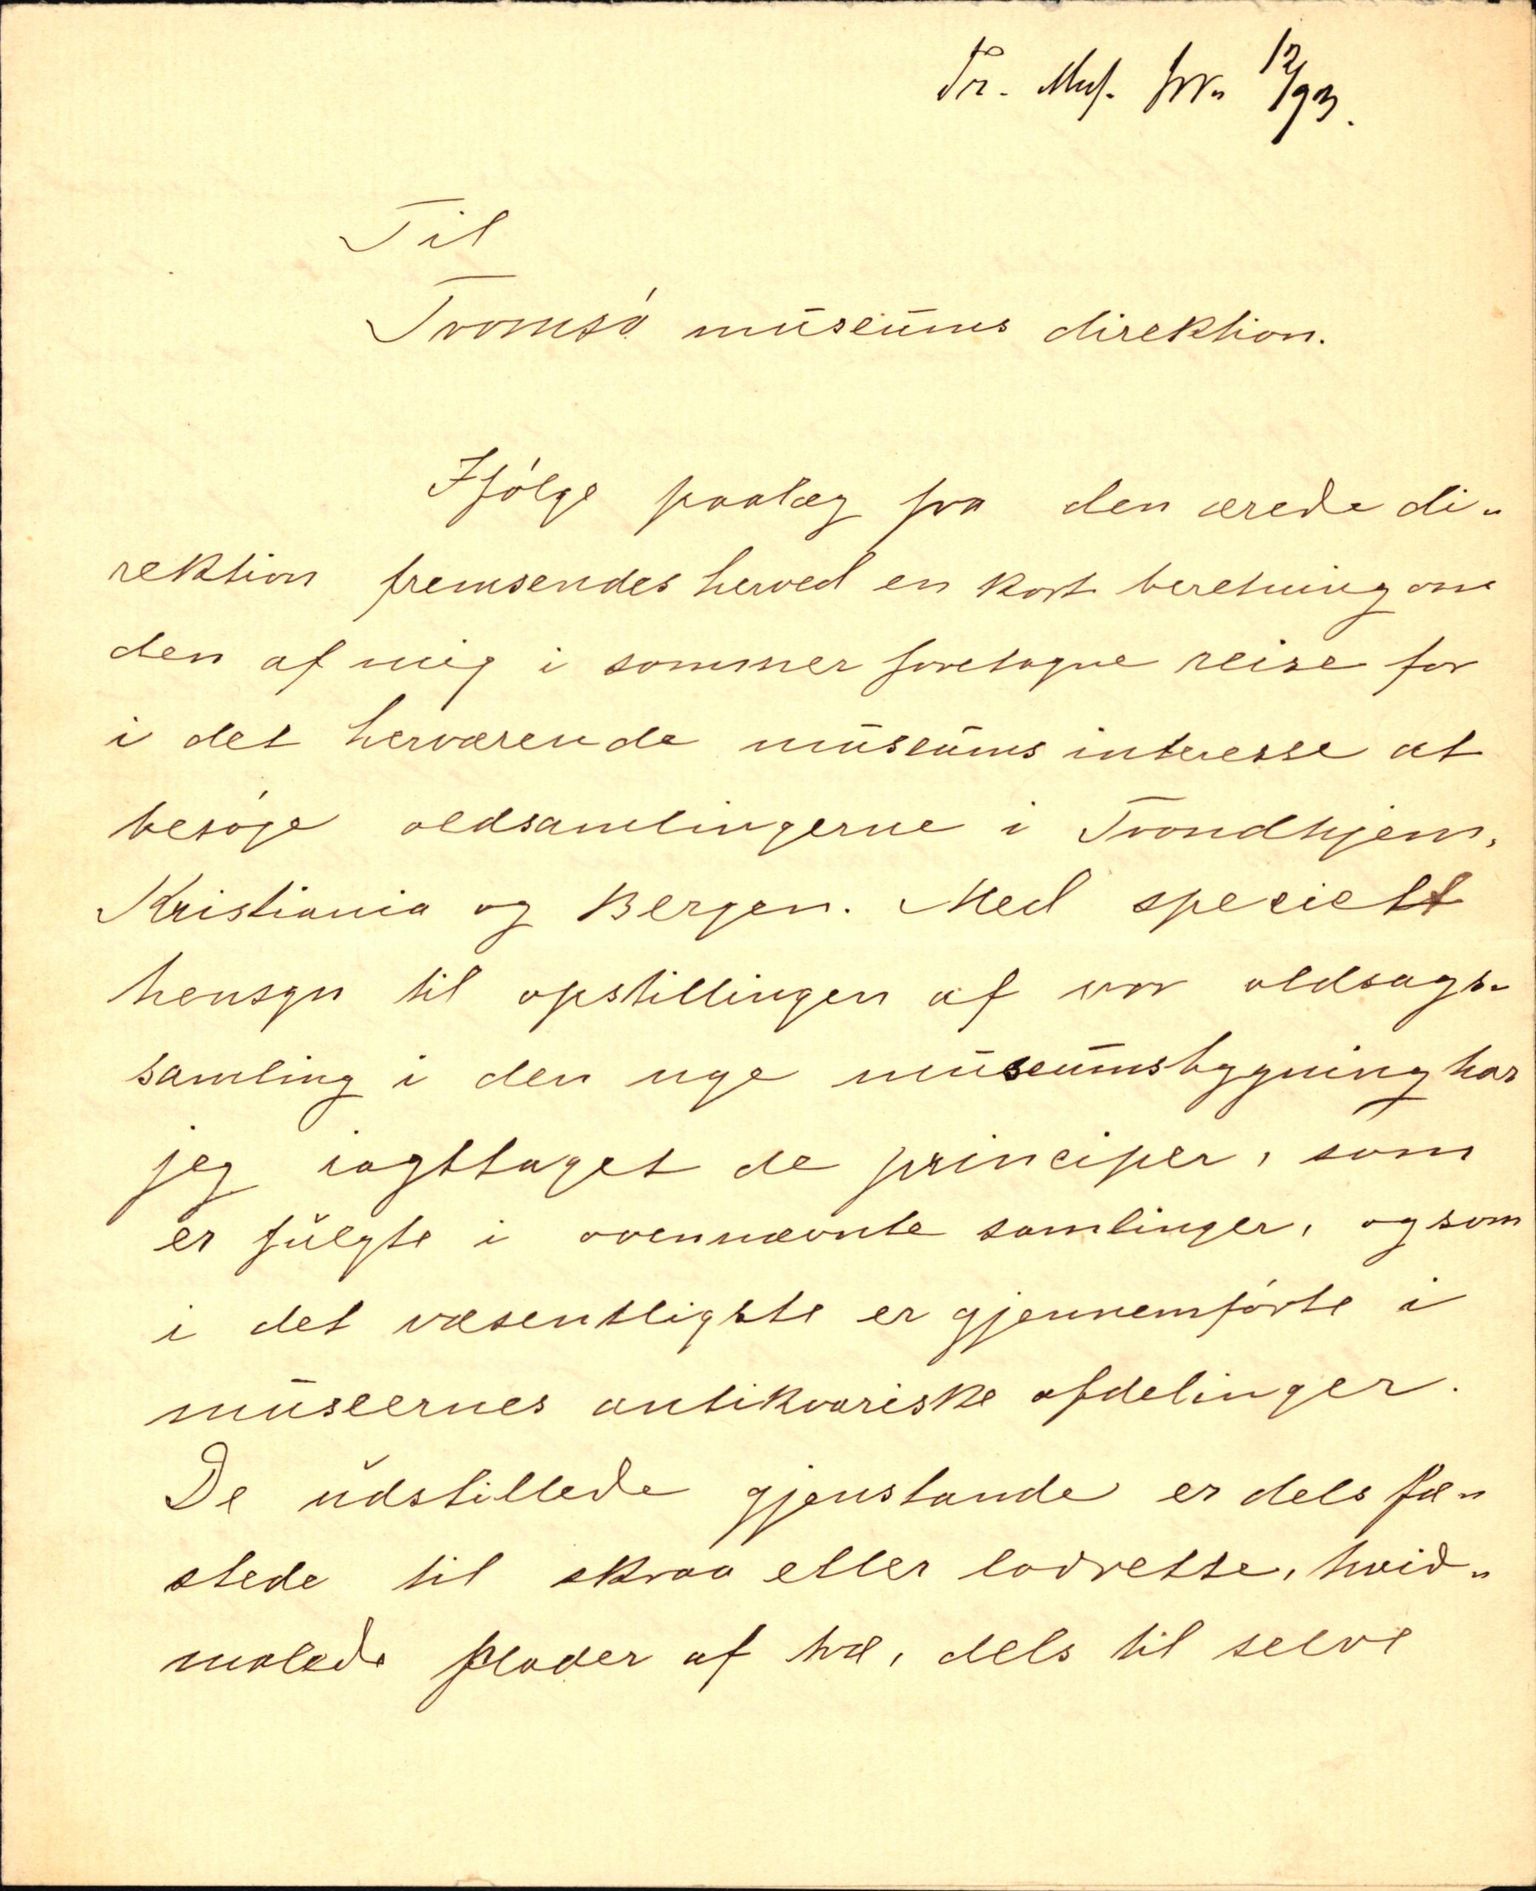 Tr. Mus. jrr. 12/93.
Til
Tromsó museums direktion.
Ifólge paalæg fra den ærede di-
rektion fremsendes herved en kort beretning om
den af mig i sommer foretagne reise for
i det herværende museums interesse at
besóge oldsamlingerne i Trondhjem,
Kristiania og Bergen. Med specielt
hensyn til opstillingen af vor oldsags-
samling i den nye museumsbygning har
jeg iagttaget de principer, som
er fulgte i ovennævnte samlinger, og som
i det væsentligste er gjennemfórte i
museernes antikvariske afdelinger.
De udstillede gjenstande er dels fæ-
stede til skraa eller lodrette, hvid-
malede plader af træ, dels til selve